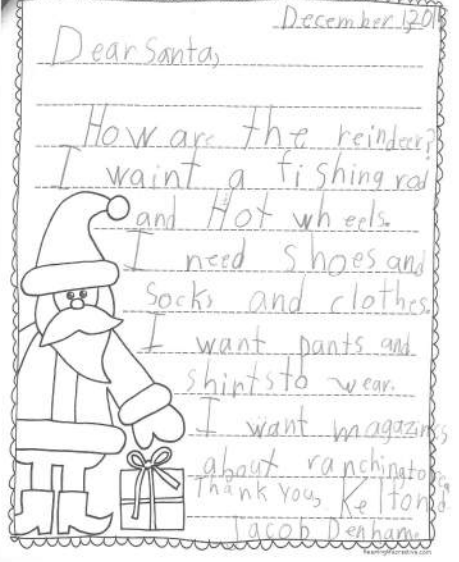 December 1, 201
Dear Santa,
How are the reindeer?
I waint a fishing rod
and Hot wheels.
I need shoes and
socks and clothes.
I want pants and
shirts to wear.
I want magazines
about ranching to
read.
Thank you, Kelton
Jacob Denham